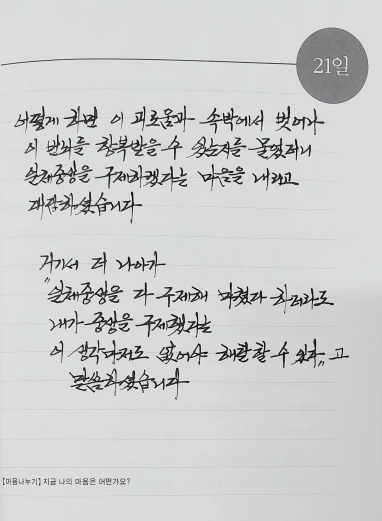 21일
어떻게 하면 이 괴로움과 속박에서 벗어나
이 번뇌를 항복받을 수 있는지를 물었더니
일체중생을 구제하겠다는 마음을 내라고
대답하셨습니다
거기서 더 나아가
"일체중생을 다 구제해 마쳤다 하더라도
내가 중생을 구제했다는
이 생각마저도 없어야 해탈할 수 있다"고
말씀하셨습니다
[마음나누기] 지금 나의 마음은 어떤가요?